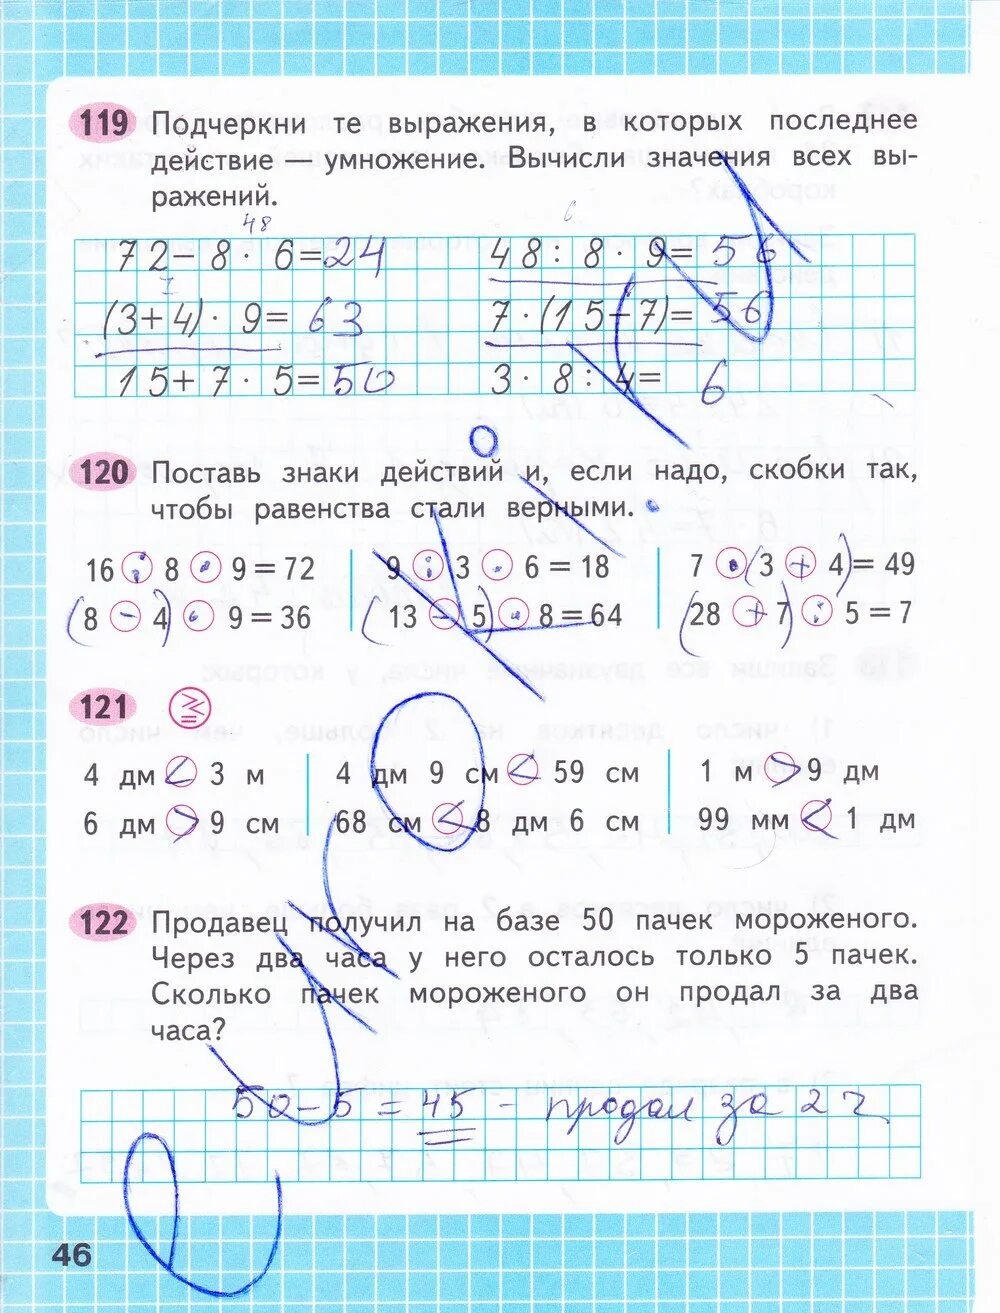 119 Подчеркни те выражения, в которых последнее
действие – умножение. Вычисли значения всех вы-
ражений.
48
6
72 – 8 · 6 = 24
48 : 8 · 9 = 56
7
(3 + 4) · 9 = 63
7 · (15 – 7) = 56
15 + 7 · 5 = 50
3 · 8 : 4 = 6
120 Поставь знаки действий и, если надо, скобки так,
чтобы равенства стали верными.
16 : 8 · 9 = 72
9 : 3 · 6 = 18
7 · (3 + 4) = 49
(8 – 4) · 9 = 36
(13 – 5) · 8 = 64
(28 + 7) : 5 = 7
121
4 дм < 3 м
4 дм 9 см < 59 см
1 м > 9 дм
6 дм > 9 см
68 см < 8 дм 6 см
99 мм < 1 дм
122 Продавец получил на базе 50 пачек мороженого.
Через два часа у него осталось только 5 пачек.
Сколько пачек мороженого он продал за два
часа?
50 – 5 = 45 – продал за 2 ч
46